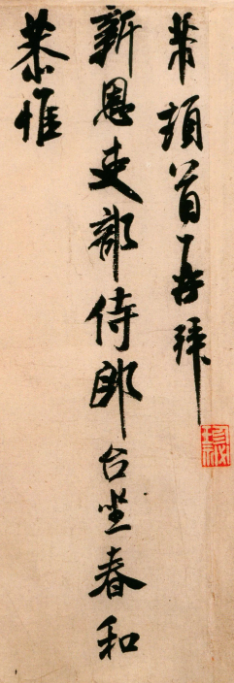 芾頓首再拜
新恩吏部侍郎台坐春和
恭惟